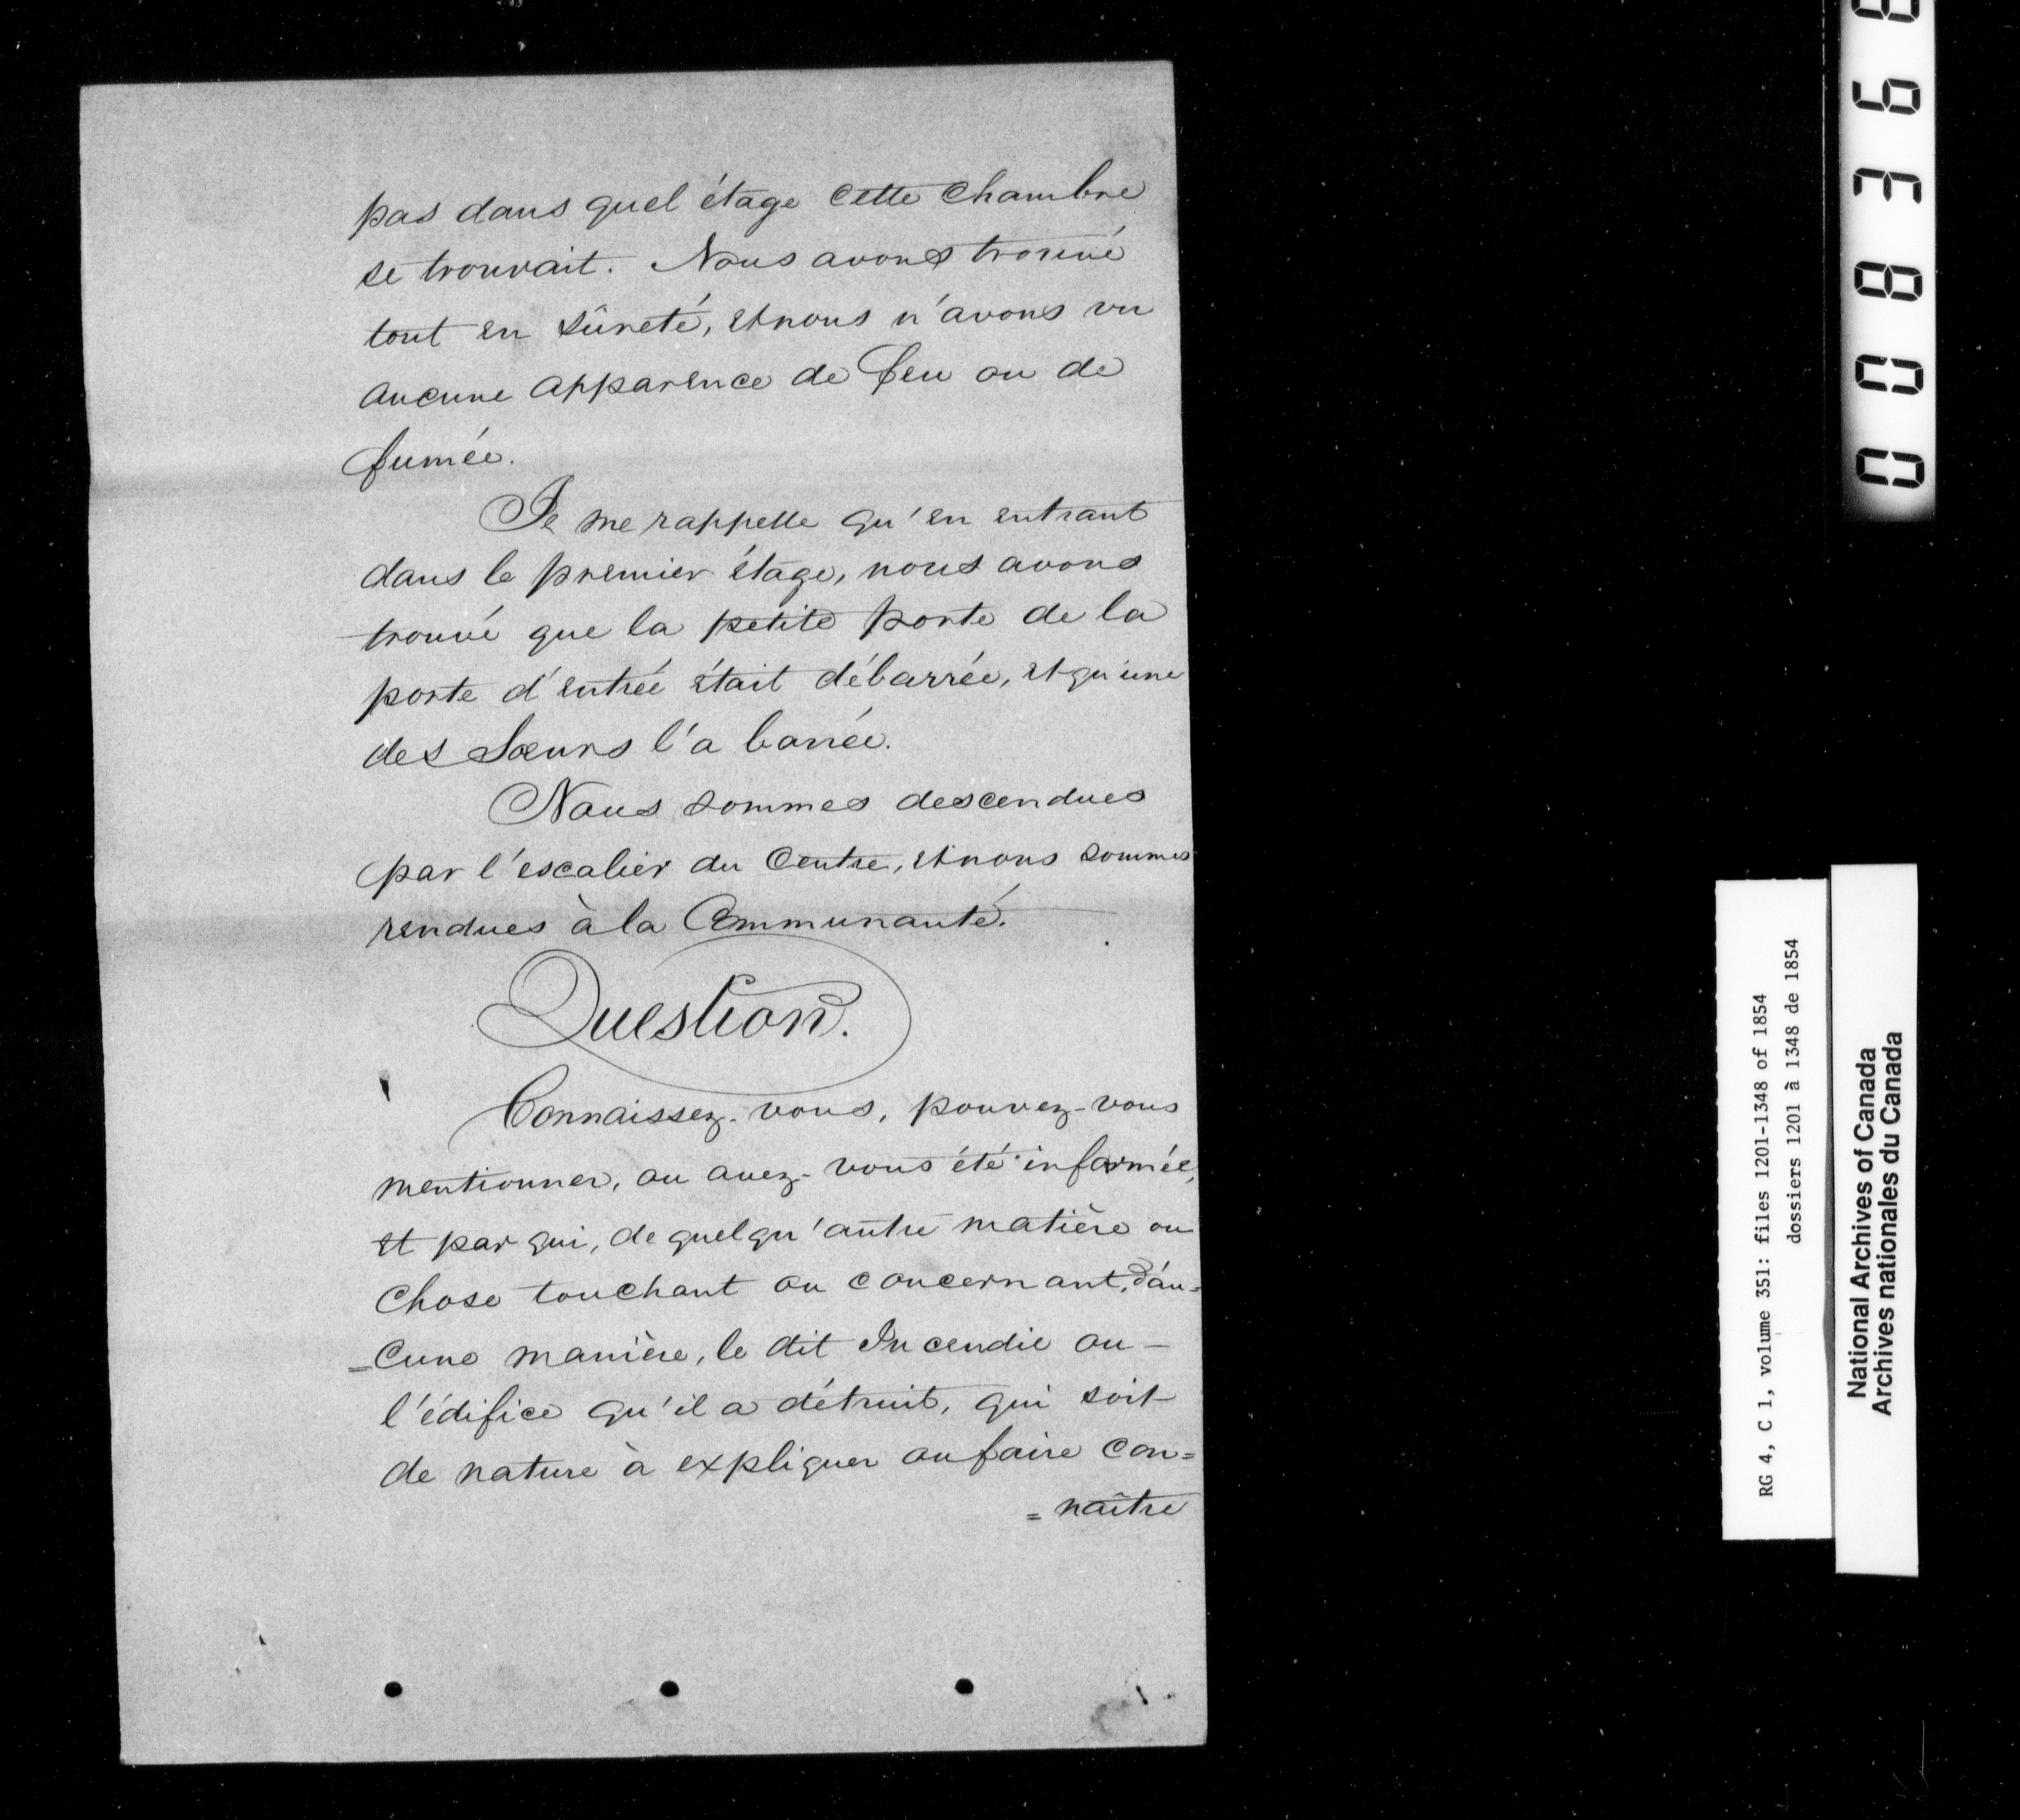 pas dans quel étage cette chambre
se trouvait. Nous avons trouvé
tout en sûreté, et nous n'avons vu
aucune apparence de feu ou de
fumée.
Je me rappelle qu'en entrant
dans le premier étage, nous avons
trouvé que la petite porte de la
porte d'entrée était débarrée, et qu'une
des Sœurs l'a barrée.
Nous sommes descendues
par l'escalier du Centre, et nous sommes
rendues à la Communauté.
Question.
Connaissez-vous, pouvez-vous
mentionner, ou avez-vous été informée,
et par qui, de quelqu'autre matière ou
chose touchant ou concernant, d'au=
=cune manière, le dit Incendie ou —
l'édifice qu'il a détruit, qui soit
de nature à expliquer ou faire con=
=naître
008368
RG 4, C 1, volume 351: files 1201-1348 of 1854
dossiers 1201 à 1348 de 1854
National Archives of Canada
Archives nationales du Canada